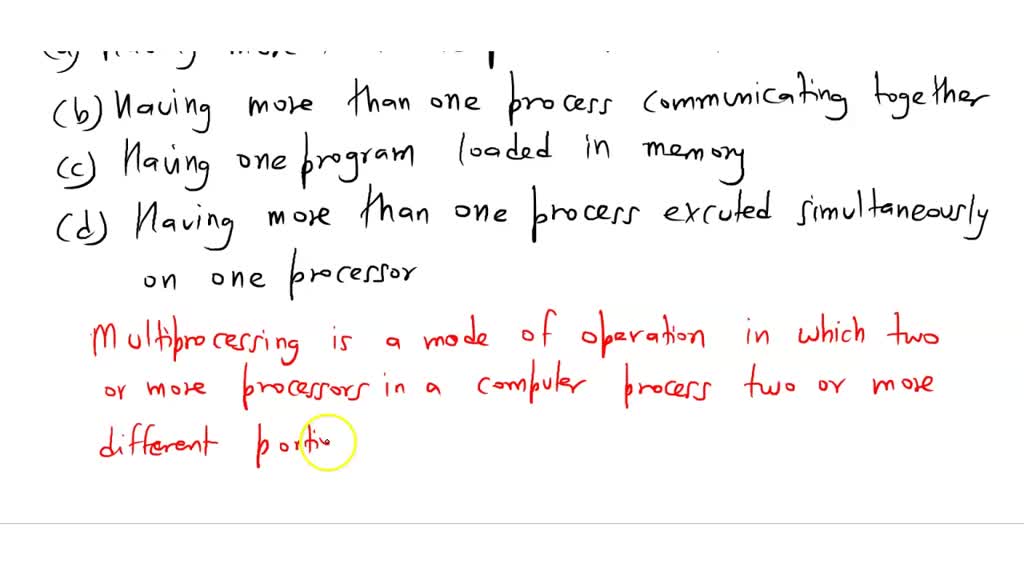 (a) Having more
(b) Having more than one process communicating together
(c) Having one program loaded in memory
(d) Having more than one process excuted simultaneously
on one processor
Multiprocessing is a mode of operation in which two
or more processors in a computer process two or more
different porti